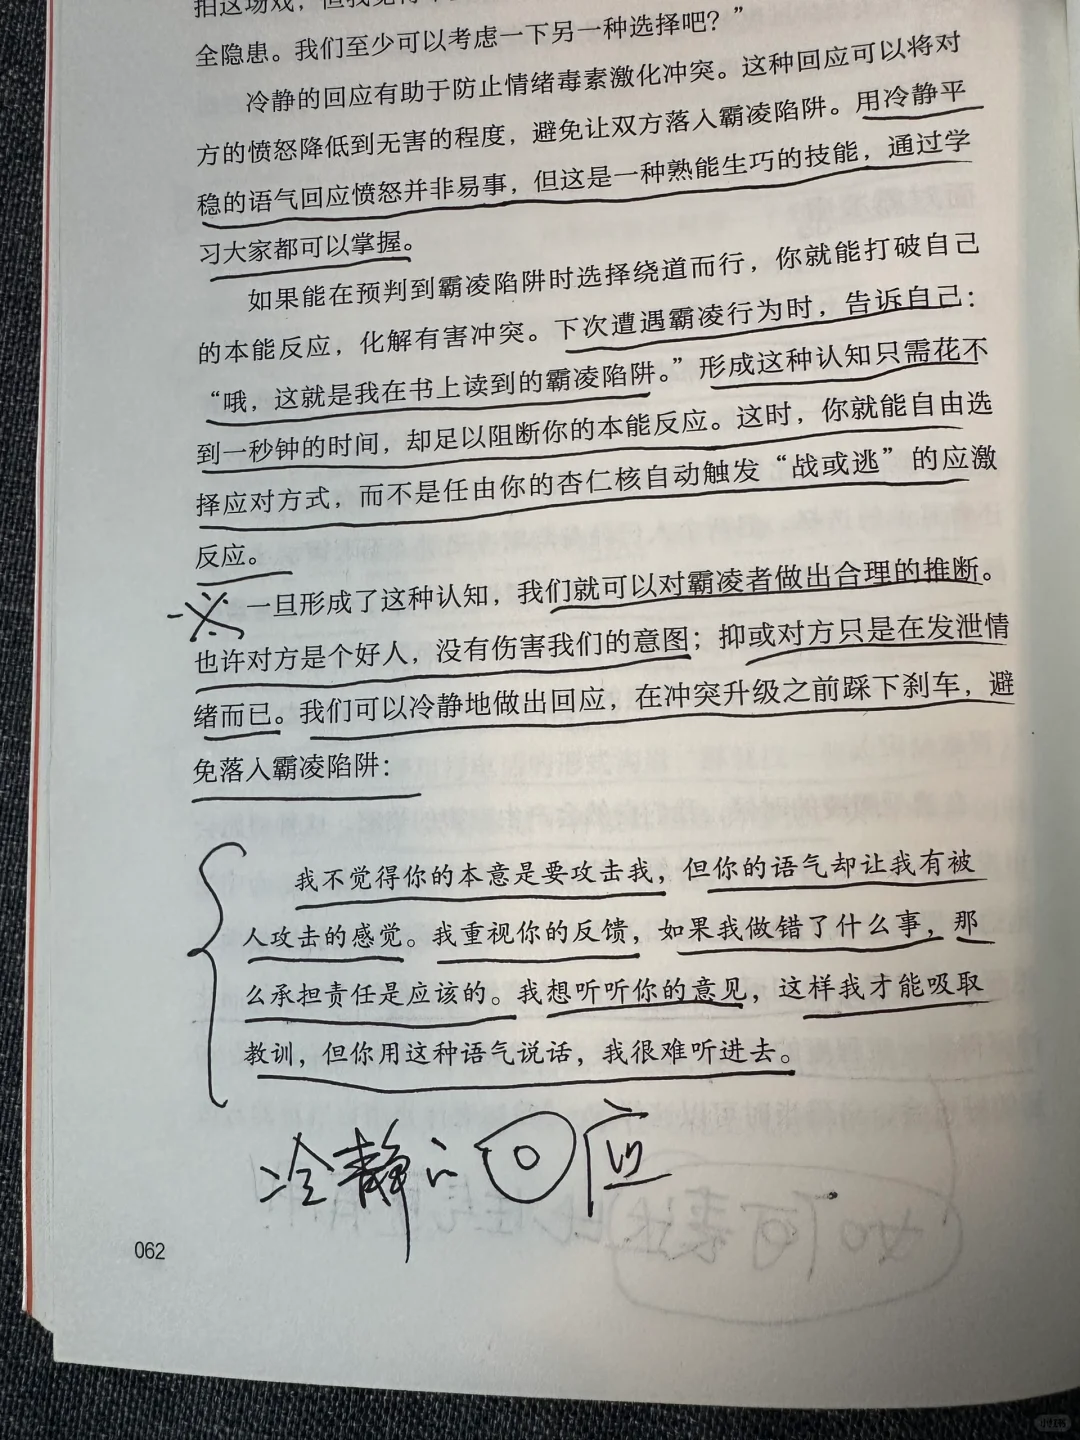 拍这场戏，但我觉得
全隐患。我们至少可以考虑一下另一种选择吧？”
冷静的回应有助于防止情绪毒素激化冲突。这种回应可以将对
方的愤怒降低到无害的程度，避免让双方落入霸凌陷阱。用冷静平
稳的语气回应愤怒并非易事，但这是一种熟能生巧的技能，通过学
习大家都可以掌握。
如果能在预判到霸凌陷阱时选择绕道而行，你就能打破自己
的本能反应，化解有害冲突。下次遭遇霸凌行为时，告诉自己：
“哦，这就是我在书上读到的霸凌陷阱。”形成这种认知只需花不
到一秒钟的时间，却足以阻断你的本能反应。这时，你就能自由选
择应对方式，而不是任由你的杏仁核自动触发“战或逃”的应激
反应。
一旦形成了这种认知，我们就可以对霸凌者做出合理的推断。
也许对方是个好人，没有伤害我们的意图；抑或对方只是在发泄情
绪而已。我们可以冷静地做出回应，在冲突升级之前踩下刹车，避
免落入霸凌陷阱：
我不觉得你的本意是要攻击我，但你的语气却让我有被
人攻击的感觉。我重视你的反馈，如果我做错了什么事，那
么承担责任是应该的。我想听听你的意见，这样我才能吸取
教训，但你用这种语气说话，我很难听进去。
冷静的回应
062